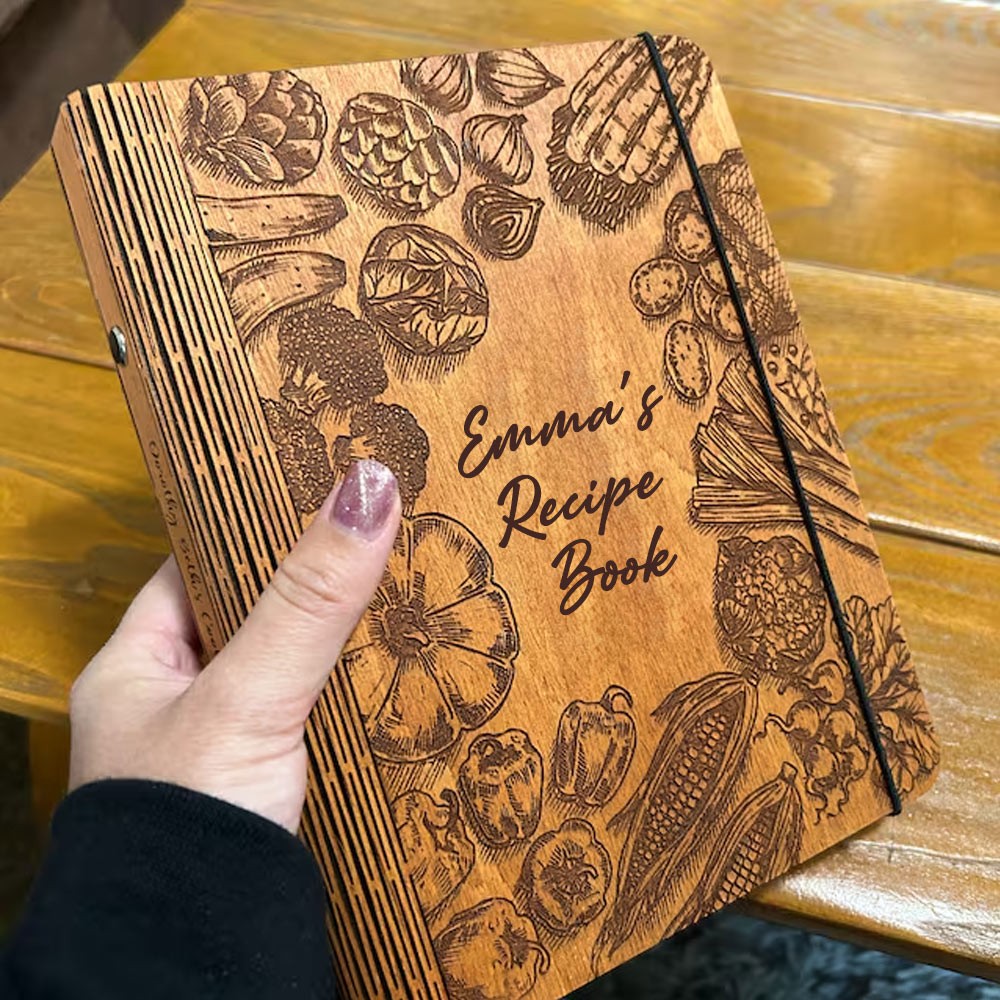 Emma's
Recipe
Book